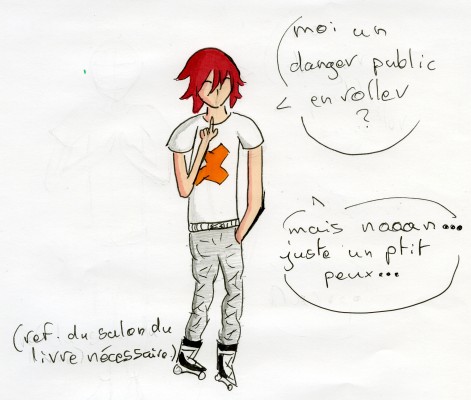 moi un
danger public
en roller
?
mais naaan...
juste un ptit
peux...
(ref. du salon du
livre nécessaire)